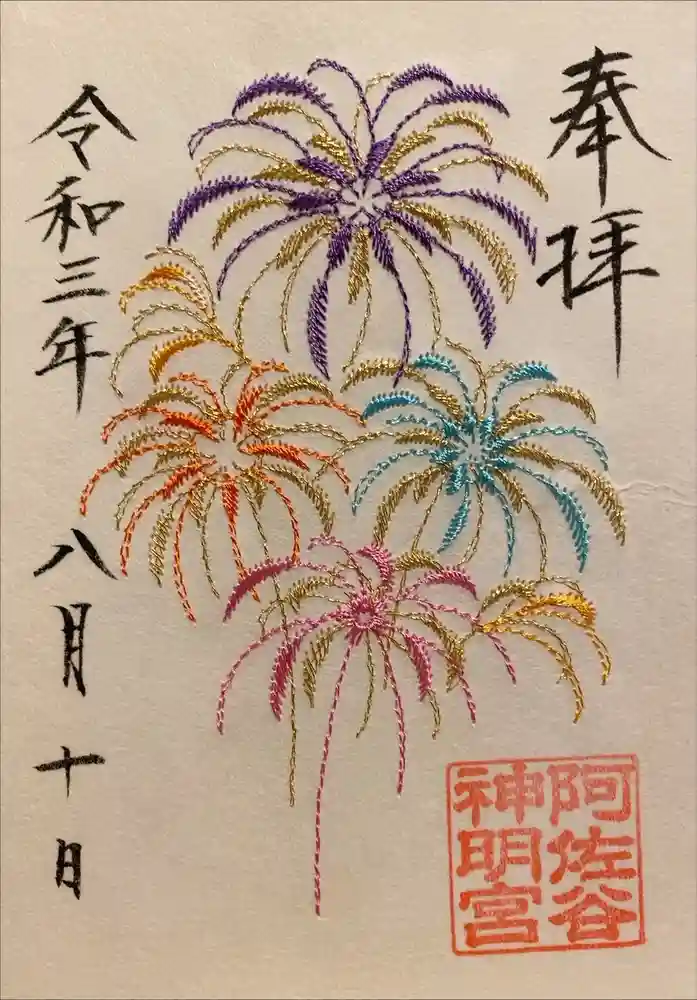 奉拝
阿佐谷
神明宮
令和三年
八月十日